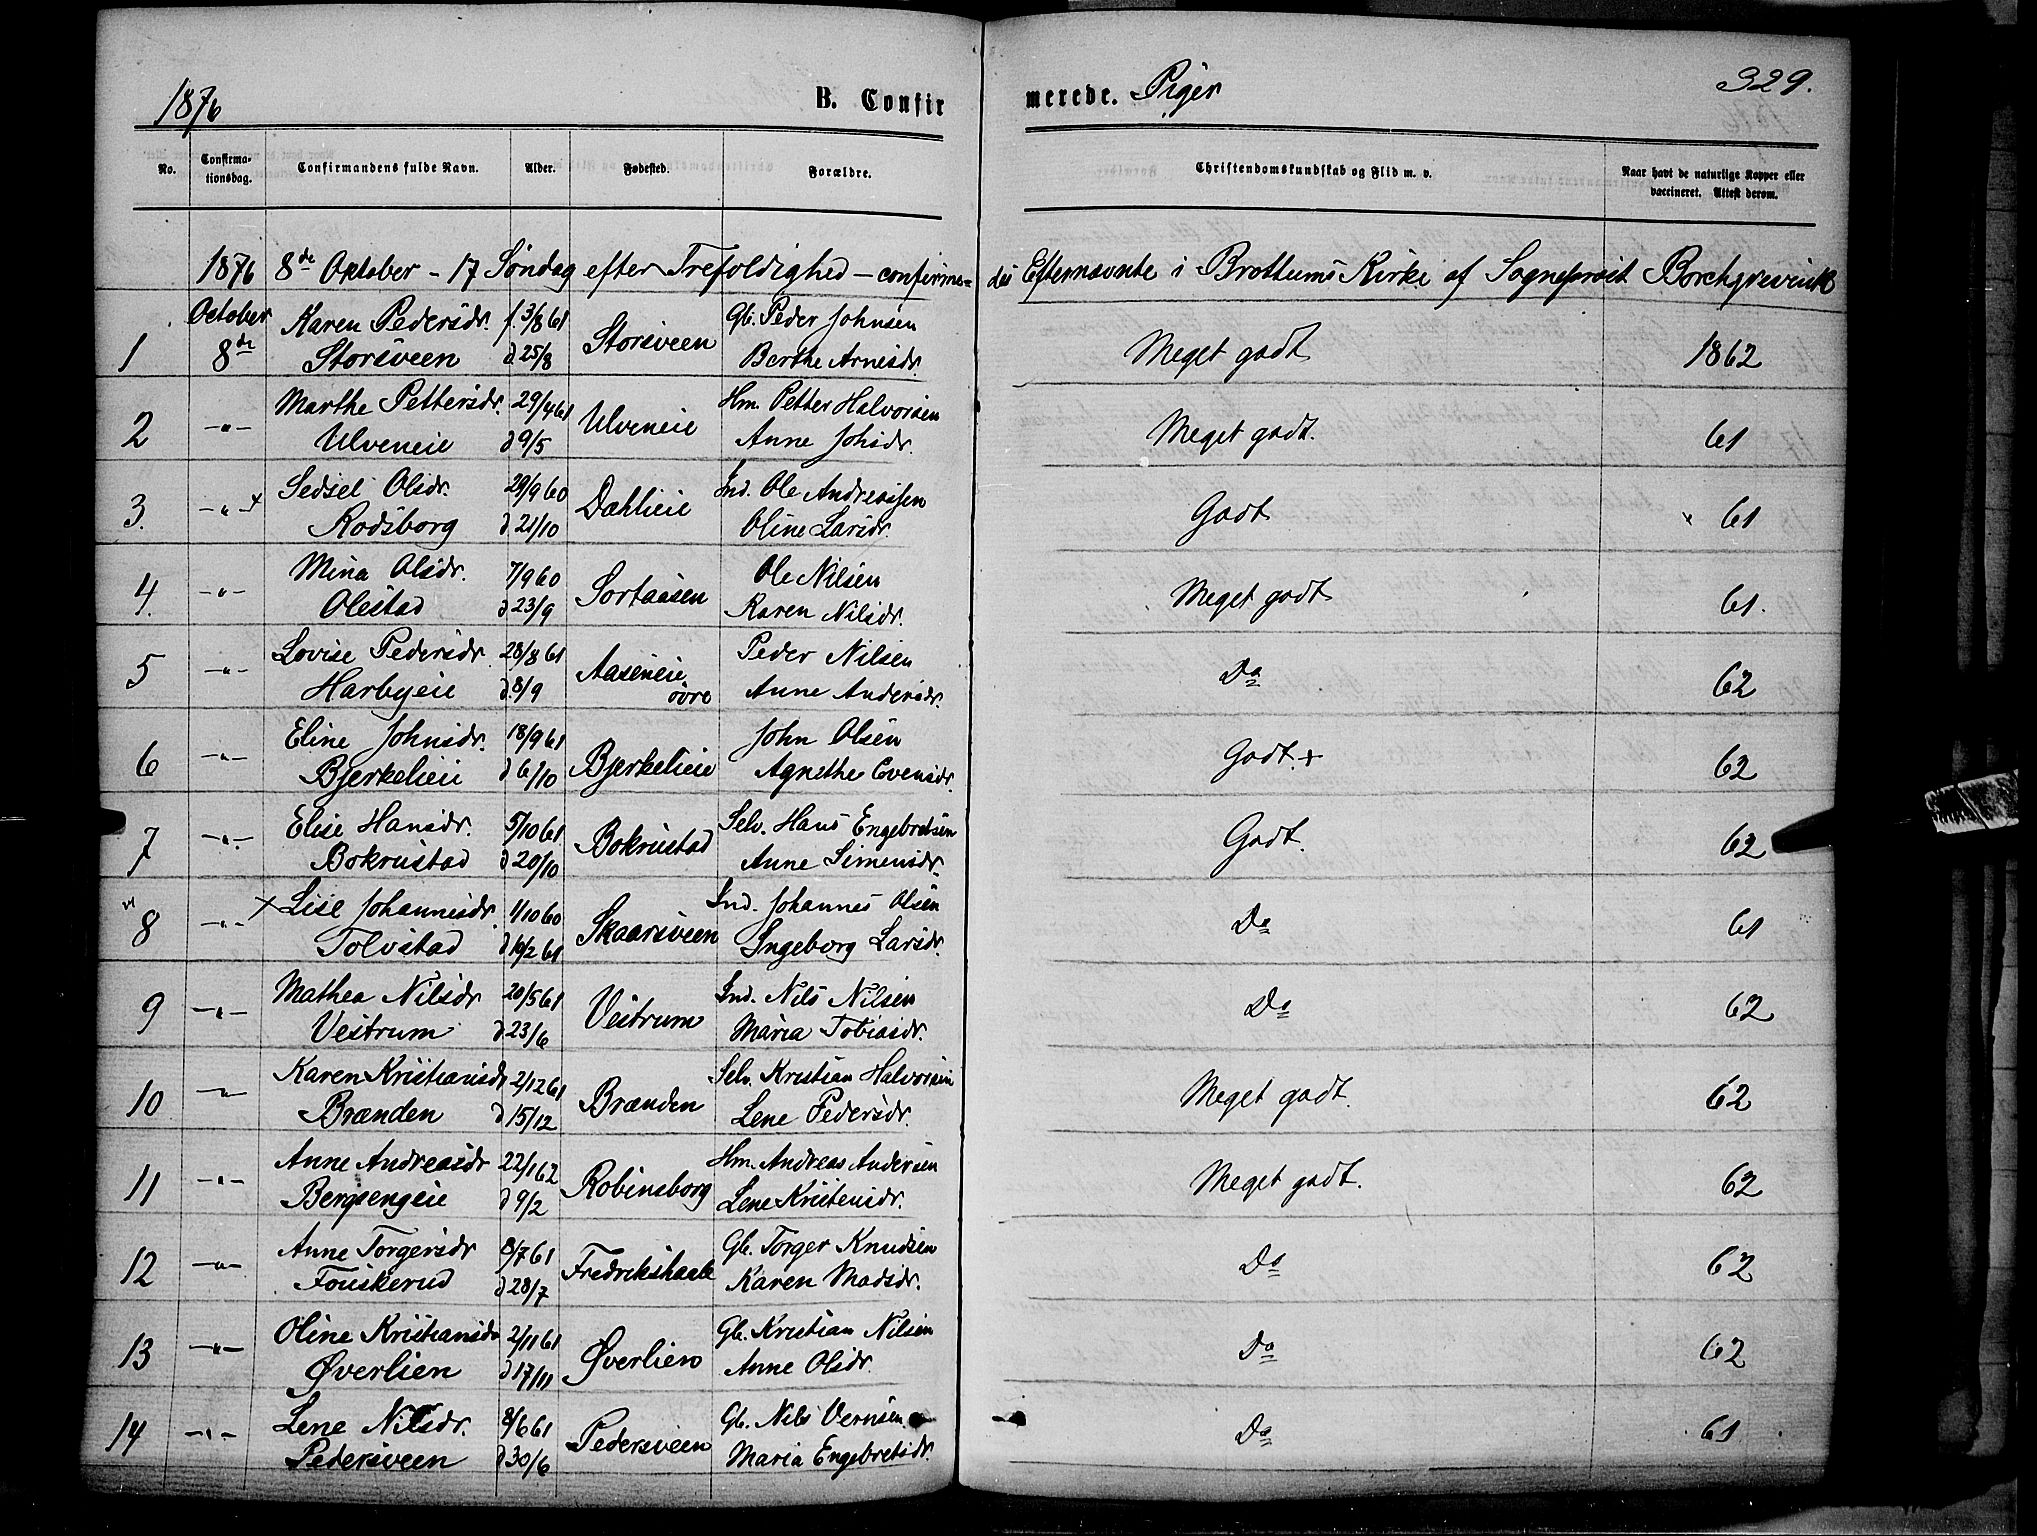 1876 B. Confirmerede. Piger 329.
No. Confirmationsdag. Confirmandens fulde Navn. Alder. Fødested. Forældre. Christendomskundskab og Flid m. v. Naar havt de naturlige Kopper eller vaccineret. Attest derom.
1876 8de Oktober - 17 Søndag efter Trefoldighed - confirmedes Efternævnte i Brottums Kirke af Sogneprest Borchgrevink
October Karen Pedersdr. f. 3/8 61 Storsveen Gb. Peder Johnsen Meget godt 1862
1 8de Storsveen d 25/8 Berthe Arnesdr.
Marthe Pettersdr. 29/4 61 Ulveneie Hm. Petter Halvorsen Meget godt. 61
2 -"- Ulveneie d 9/5 Anne Johsdr.
Sedsel Olsdr. 29/9 60 Dæhlieie Ind. Ole Andreassen Godt x 61
3. -"- x Rodsborg d 21/10 Oline Larsdr.
Mina Olsdr. 7/9 60 Sortaasen Ole Nilsen Meget godt 61.
4. -"- Olestad d 23/9 Karen Nilsdr.
Lovise Pedersdr. 28/8 61 Aaseneie øvre Peder Nilsen Do 62
5 -"- Harbyeie d. 8/9 Anne Andersdr.
Eline Johnsdr. 18/9 61 Bjerkelieie John Olsen Godt.+ 62
6 -"- Bjerkelieie d 6/10 Agnethe Evensdr.
Elise Hansdr. 5/10 61 Bokrustad Selv. Hans Engebretsen Godt. 62
7 -"- Bokrustad d 20/10 Anne Simensdr.
x Lise Johannesdr. 1/10 60 Skaarsveen Ind. Johannes Olsen Do 61
8 -"- Tolvstad d 10/2 61 Ingeborg Larsdr.
Mathea Nilsdr 20/5 61 Vestrum Ind. Nils Nilsen Do 62
9 -"- Vestrum d 23/6 Maria Tobiasdr.
Karen Kristiansdr 2/12 61 Brænden Selv. Kristian Halvorsen Meget godt. 62
10 -"- Brænden d 15/12 Lene Pedersdr.
Anne Andreasdr 22/1 62 Robinsborg Hm. Andreas Andersen Meget godt. 62
11 -"- Bergsengeie d 9/2 Lene Kristensdr.
Anne Torgersdr 8/7 61 Fredrikshaab Gb. Torger Knudsen Do 62
12 -"- Fouskerud d 28/7 Karen Madsdr.
Oline Kristiansdr 2/11 61 Øverlien Gb. Kristian Nilsen Do 62
13 -"- Øverlien d 17/11 Anne Olsdr.
Lene Nilsdr. 8/6 61 Pedersveen Gb. Nils Vernsen Do 61
14 -"- Pedersveen d 30/6 Maria Engebretsdr.